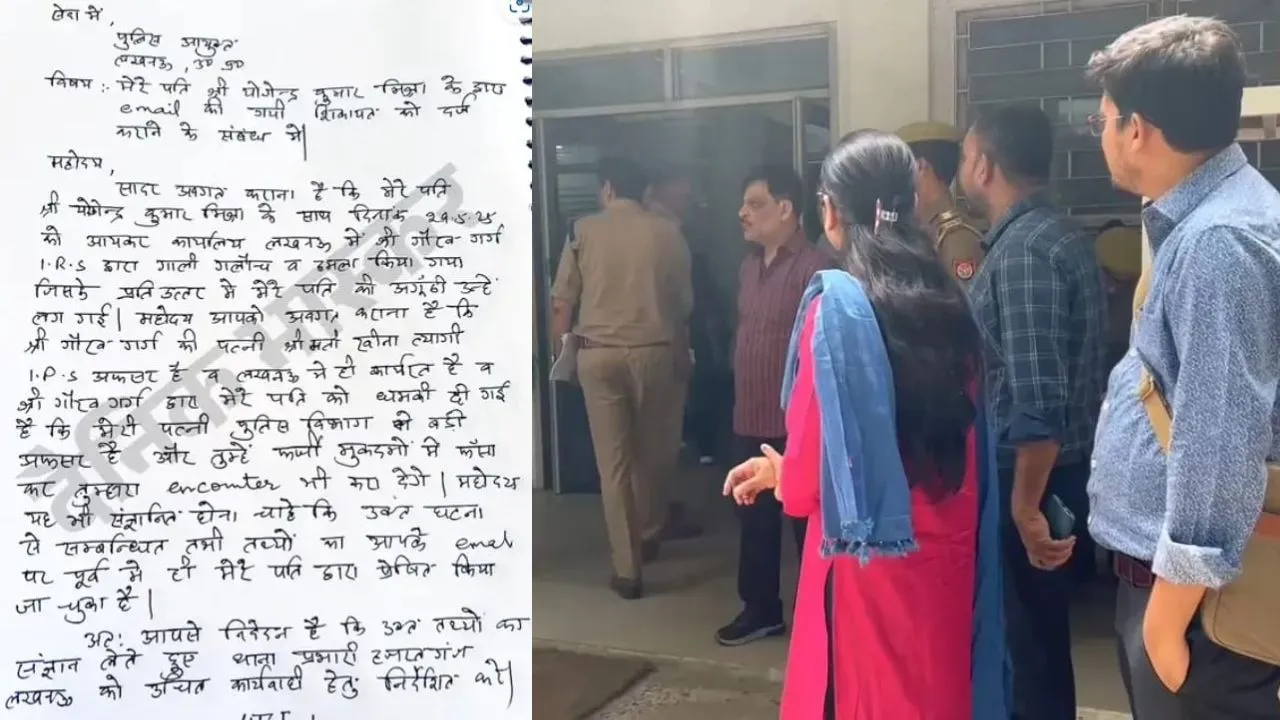 सेवा में,
पुलिस आयुक्त
लखनऊ, उ० प्र०
विषय :- मेरे पति श्री योगेन्द्र कुमार मिश्रा के द्वारा
email की गयी शिकायत को दर्ज
कराने के संबंध में|
महोदय,
सादर अवगत कराना है कि मेरे पति
श्री योगेन्द्र कुमार मिश्रा के साथ दिनांक 29.5.25
को आयकर कार्यालय लखनऊ में श्री गौरव गर्ग
I.R.S द्वारा गाली गलौच व हमला किया गया
जिसके प्रतिउत्तर मे मेरे पति की अगूंठी उन्हें
लग गई| महोदय आपको अवगत कराना है कि
श्री गौरव गर्ग की पत्नी श्रीमती रवीना त्यागी
I.P.S अफसर है व लखनऊ मे ही कार्यरत है व
श्री गौरव गर्ग द्वारा मेरे पति को धमकी दी गई
है कि मेरी पत्नी पुलिस विभाग मे बड़ी
अफसर है और तुम्हें फर्जी मुकदमों मे फँसा
कर तुम्हारा encounter भी करा देगे| महोदय
यह भी संज्ञानित होना चाहे कि उक्त घटना
से सम्बन्धित सभी तथ्यों का आपके email
पर पूर्व मे ही मेरे पति द्वारा प्रेषित किया
जा चुका है|
अत: आपसे निवेदन है कि उक्त तथ्यों का
संज्ञान लेते हुए थाना प्रभारी हजरतगंज
लखनऊ को उचित कार्यवाही हेतु निर्देशित करें|
दैनिक भास्कर